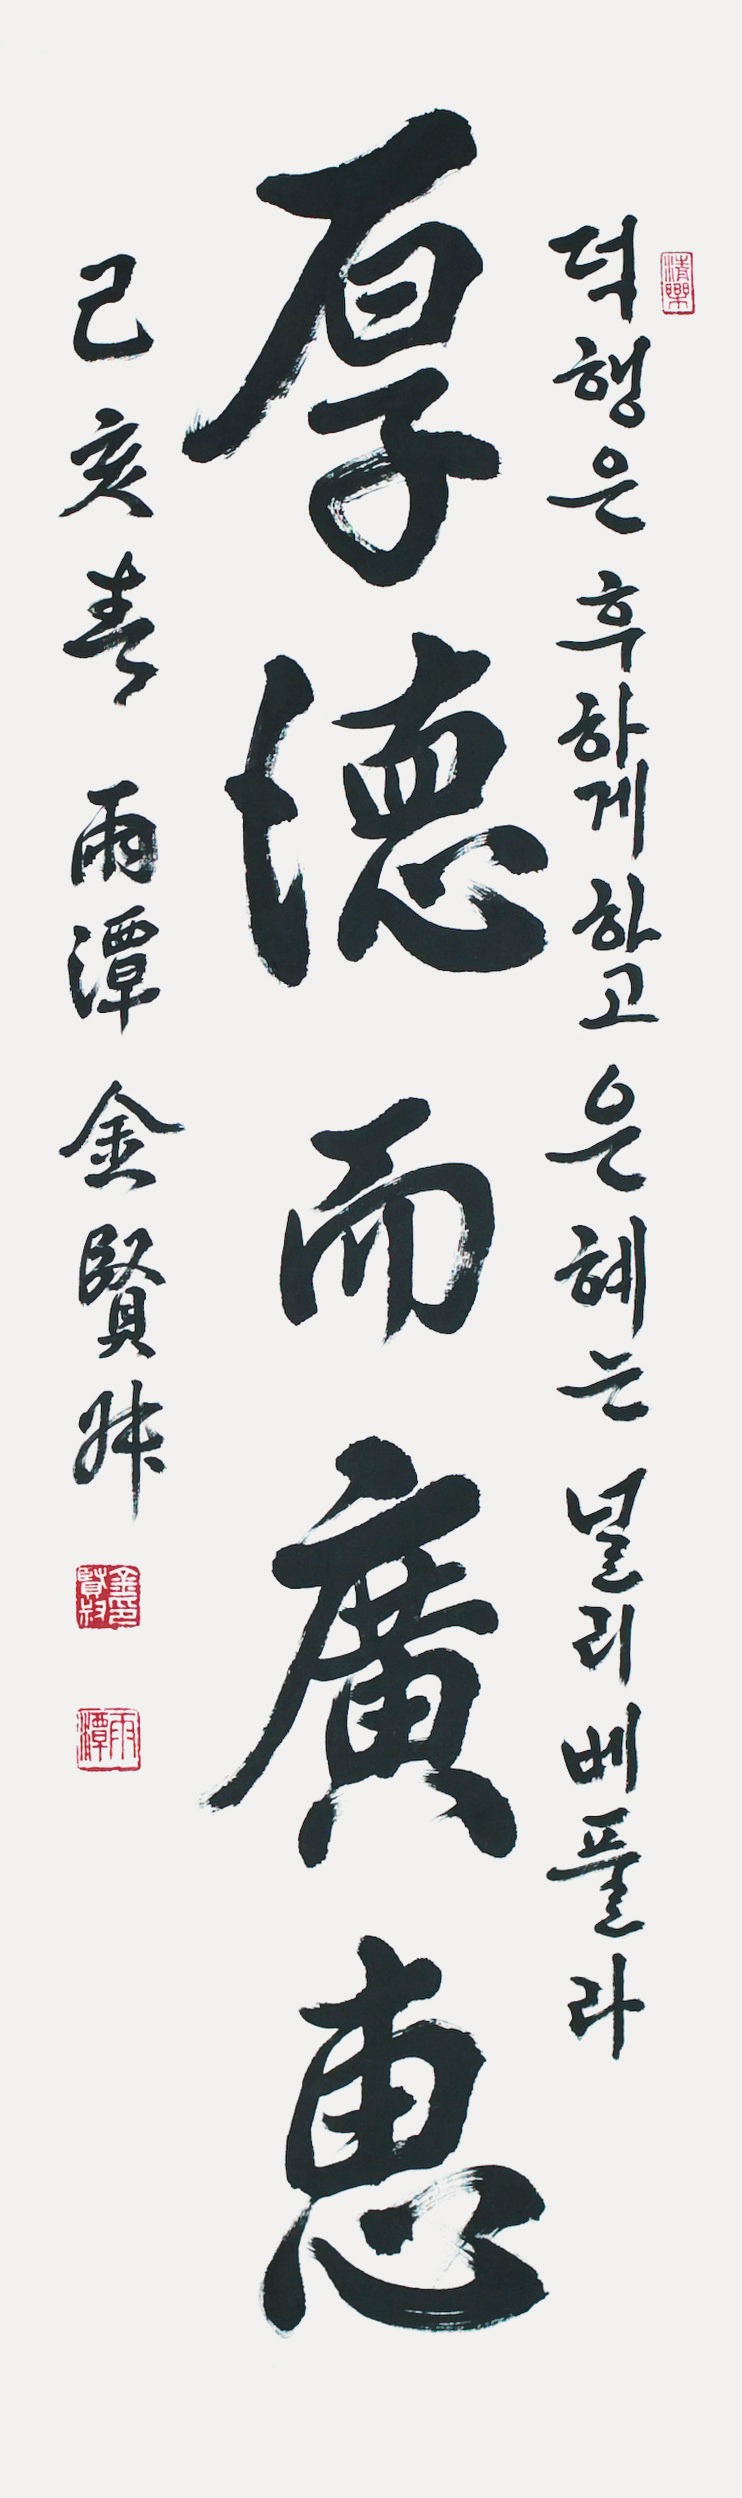 淸樂
덕행은 후하게 하고 은혜는 널리 베풀라
厚德而廣惠
己亥春 雨潭 金賢淑
雨潭